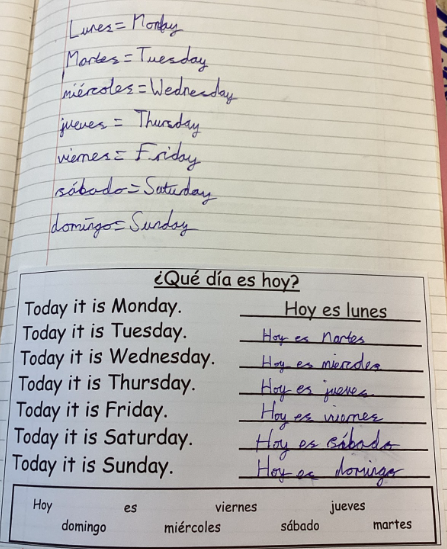 Lunes = Monday
Martes = Tuesday
miércoles = Wednesday
jueves = Thursday
viernes = Friday
sábado = Saturday
domingo = Sunday
¿Qué día es hoy?
Today it is Monday. Hoy es lunes
Today it is Tuesday. Hoy es martes
Today it is Wednesday. Hoy es miercoles
Today it is Thursday. Hoy es jueves
Today it is Friday. Hoy es viernes
Today it is Saturday. Hoy es sábado
Today it is Sunday. Hoy es domingo
Hoy es viernes jueves
domingo miércoles sábado martes